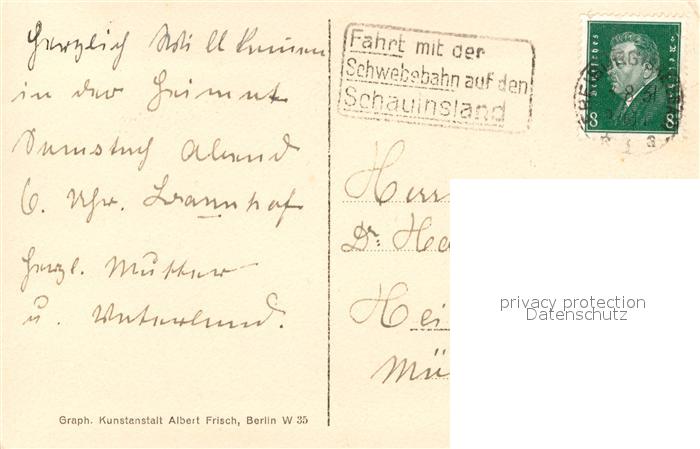 Herzlich Willkommen
in der Heimat
Samstach Abend
6. Uhr.
Herzl. Mutter
u. Vaterland.
Graph. Kunstanstalt Albert Frisch, Berlin W 35
Fahrt mit der
Schwebebahn auf den
Schauinsland
Deutsches Reich
8 8
Herrn
Dr. He
Hei
Mü
privacy protection
Datenschutz